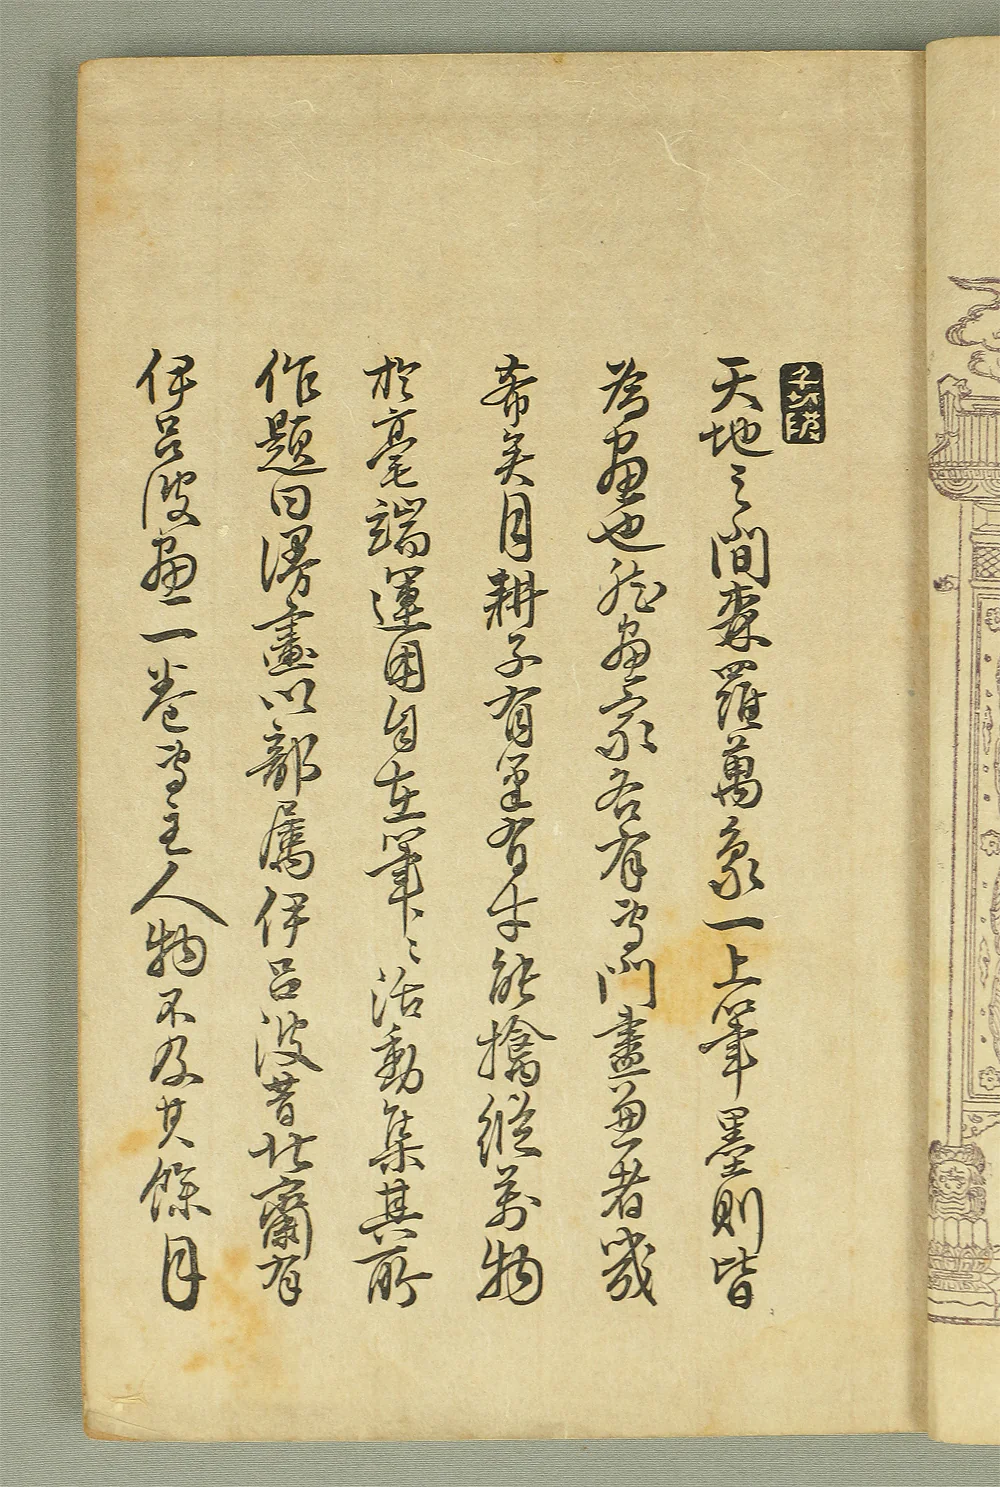 天地之間森羅萬象一上筆墨則皆
為畫也然畫家各有專門盡兼者幾
希矣月耕子有筆有才能擒縱萬物
於毫端運用自在筆〻活動集其所
作題曰漫畫以部属伊呂波昔北齋有
伊呂波画一卷専主人物不及其餘月